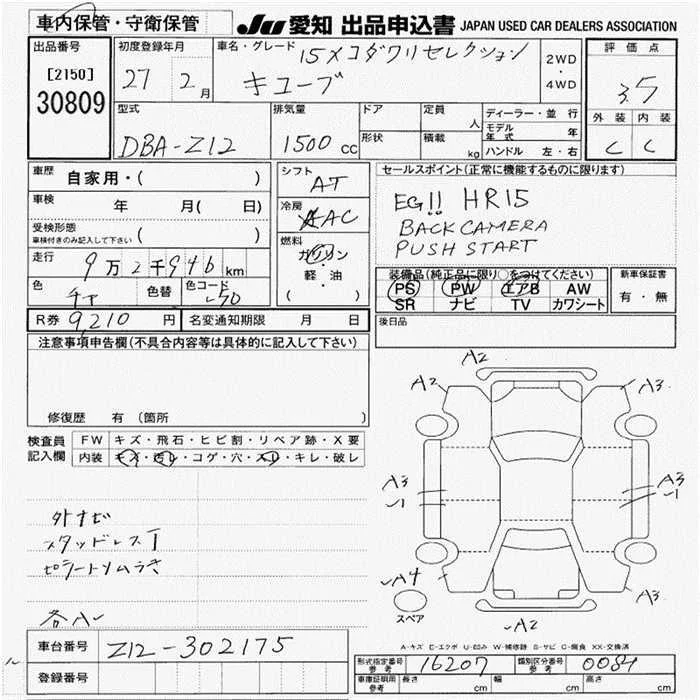 車内保管・守衛保管
JU 愛知 出品申込書 JAPAN USED CAR DEALERS ASSOCIATION
出品番号
[2150]
30809
初度登録年月
27 2月
車名・グレード
15Xコダワリセレクション
キューブ
2WD
・
4WD
評価点
3.5
外装 内装
C C
型式
DBA-Z12
排気量
1500 cc
ドア
形状
定員
人
積載
kg
ディーラー・並行
モデル年式 年
ハンドル 左・右
車歴 自家用・( )
車検 年 月( 日)
受検形態
車検付きのみ記入して下さい ( )
走行 9万2千946km
色 色替 色コード
シフト
AT
冷房
AAC
燃料
ガソリン
・
軽・油
( )
セールスポイント(正常に機能するものに限ります)
EG!! HR15
BACK CAMERA
PUSH START
装備品(純正品に限り○をつけてください)
PS PW エアB AW
SR ナビ TV カワシート
新車保証書
有・無
後日品
R券 9,210円 名変通知期限 月 日
注意事項申告欄(不具合内容等は具体的に記入して下さい)
修復歴 有(箇所 )
検査員
記入欄
FW キズ・飛石・ヒビ割・リペア跡・X要
内装 キズ・汚レ・コゲ・穴・スレ・キレ・破レ
外ナビ
スタッドレスT
各A
A2
A2
A3
A3
A3
A4
A3
A2
スペア
A-キズ E-エクボ U-凹み W-補修跡 S-サビ C-腐食 XX-交換済
車台番号 Z12-302175
登録番号
形式指定番号
参考
16207
類別区分番号
参考
0084
車庫証明用
参考
長さ cm 幅 cm 高さ cm